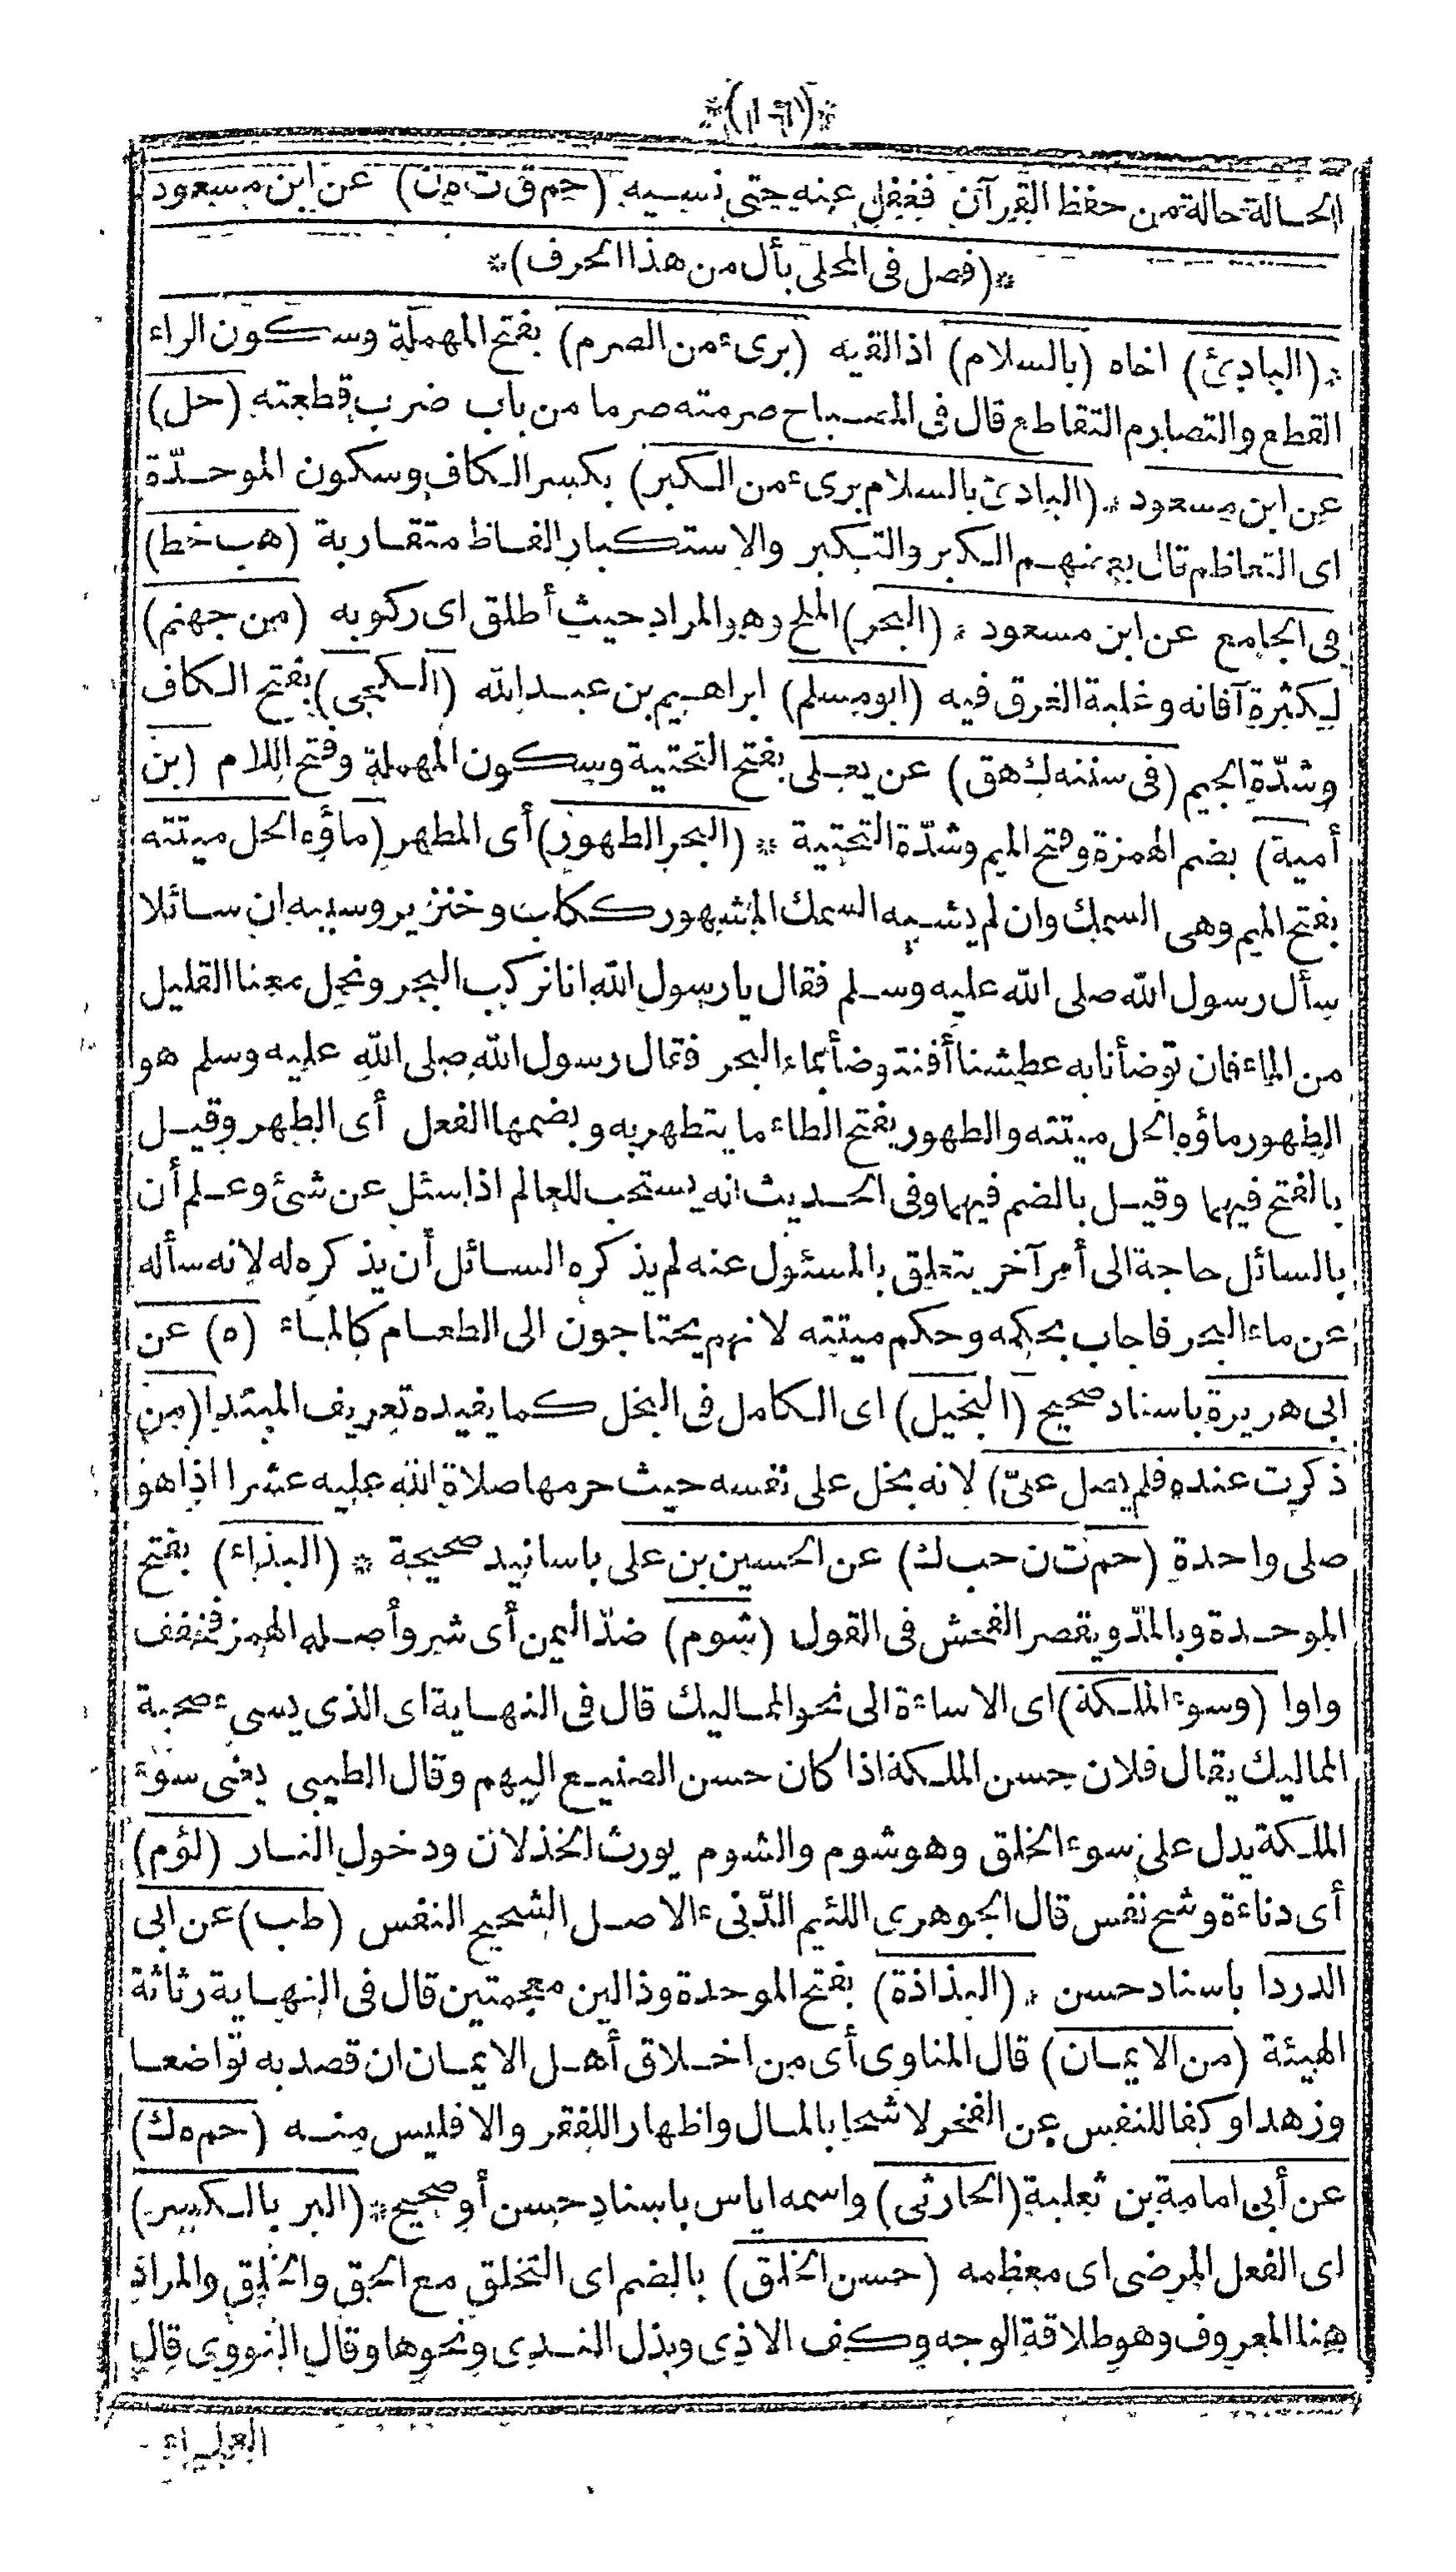 *(١٦١)*
الحالة حالة من حفظ القرآن فغفل عنه حتى نسيه (حم ق ت ن) عن ابن مسعود
*(فصل فى المحلى بأل من هذا الحرف)*
*(البادئ) اخاه (بالسلام) اذا لقيه (برىء من الصرم) بفتح المهملة وسكون الراء
القطع والتصارم التقاطع قال فى المصباح صرمته صرما من باب ضرب قطعته (حل)
عن ابن مسعود * (البادئ بالسلام برىء من الكبر) بكسر الكاف وسكون الموحدّة
اى التعاظم قال بعضهم الكبر والتكبر والاستكبار الفاظ متقاربة (هب خط)
فى الجامع عن ابن مسعود * (البحر) الملح وهو المراد حيث أطلق اى ركوبه (من جهنم)
لكثرة آفاته وغلبة الغرق فيه (ابو مسلم) ابراهيم بن عبد الله (الكجى) بفتح الكاف
وشدّة الجيم (فى سننه ك هق) عن يعلى بفتح التحتية وسكون المهملة وفتح اللام (بن
أمية) بضم الهمزة وفتح الميم وشدّة التحتية * (البحر الطهور) أى المطهر (ماؤه الحل ميتته
بفتح الميم وهى السمك وان لم يشبه السمك المشهور ككلب وخنزير وسببه ان سائلا
سأل رسول الله صلى الله عليه وسلم فقال يا رسول الله انا نركب البحر ونحمل معنا القليل
من الماء فان توضأنا به عطشنا أفنتوضأ بماء البحر فقال رسول الله صلى الله عليه وسلم هو
الطهور ماؤه الحل ميتته والطهور بفتح الطاء ما يتطهر به وبضمها الفعل أى الطهر وقيل
بالفتح فيهما وقيل بالضم فيهما وفى الحديث انه يستحب للعالم اذا سئل عن شئ وعلم أن
بالسائل حاجة الى أمر آخر يتعلق بالمسئول عنه لم يذكره السائل أن يذكره له لانه سأله
عن ماء البحر فاجاب بحكمه وحكم ميتته لانهم يحتاجون الى الطعام كالماء (ه) عن
ابى هريرة باسناد صحيح (البخيل) اى الكامل فى البخل كما يفيده تعريف المبتدا (من
ذكرت عنده فلم يصل علىّ) لانه بخل على نفسه حيث حرمها صلاة الله عليه عشرا اذا هو
صلى واحدة (حم ت ن حب ك) عن الحسين بن على باسانيد صحيحة * (البذاء) بفتح
الموحدة وبالمدّ ويقصر الفحش فى القول (شوم) ضدّ اليمن أى شر وأصله الهمز فخفف
واوا (وسوء الملكة) اى الاساءة الى نحو المماليك قال فى النهاية اى الذى يسىء صحبة
المماليك يقال فلان حسن الملكة اذا كان حسن الصنيع اليهم وقال الطيبى يعنى سوء
الملكة يدل على سوء الخلق وهو شوم والشوم يورث الخذلان ودخول النار (لؤم)
أى دناءة وشح نفس قال الجوهرى اللئيم الدّنىء الاصل الشحيح النفس (طب) عن ابى
الدردا باسناد حسن * (البذاذة) بفتح الموحدة وذالين معجمتين قال فى النهاية رثاثة
الهيئة (من الايمان) قال المناوى أى من اخلاق أهل الايمان ان قصد به تواضعا
وزهدا وكفا للنفس عن الفخر لا شحا بالمال واظهارا للفقر والا فليس منه (حم ه ك)
عن أبى امامة بن ثعلبة (الحارثى) واسمه اياس باسناد حسن أو صحيح * (البر بالكسر)
اى الفعل المرضى اى معظمه (حسن الخلق) بالضم اى التخلق مع الحق والخلق والمراد
هنا المعروف وهو طلاقة الوجه وكف الاذى وبذل الندى ونحوها وقال النووى قال
العلماء